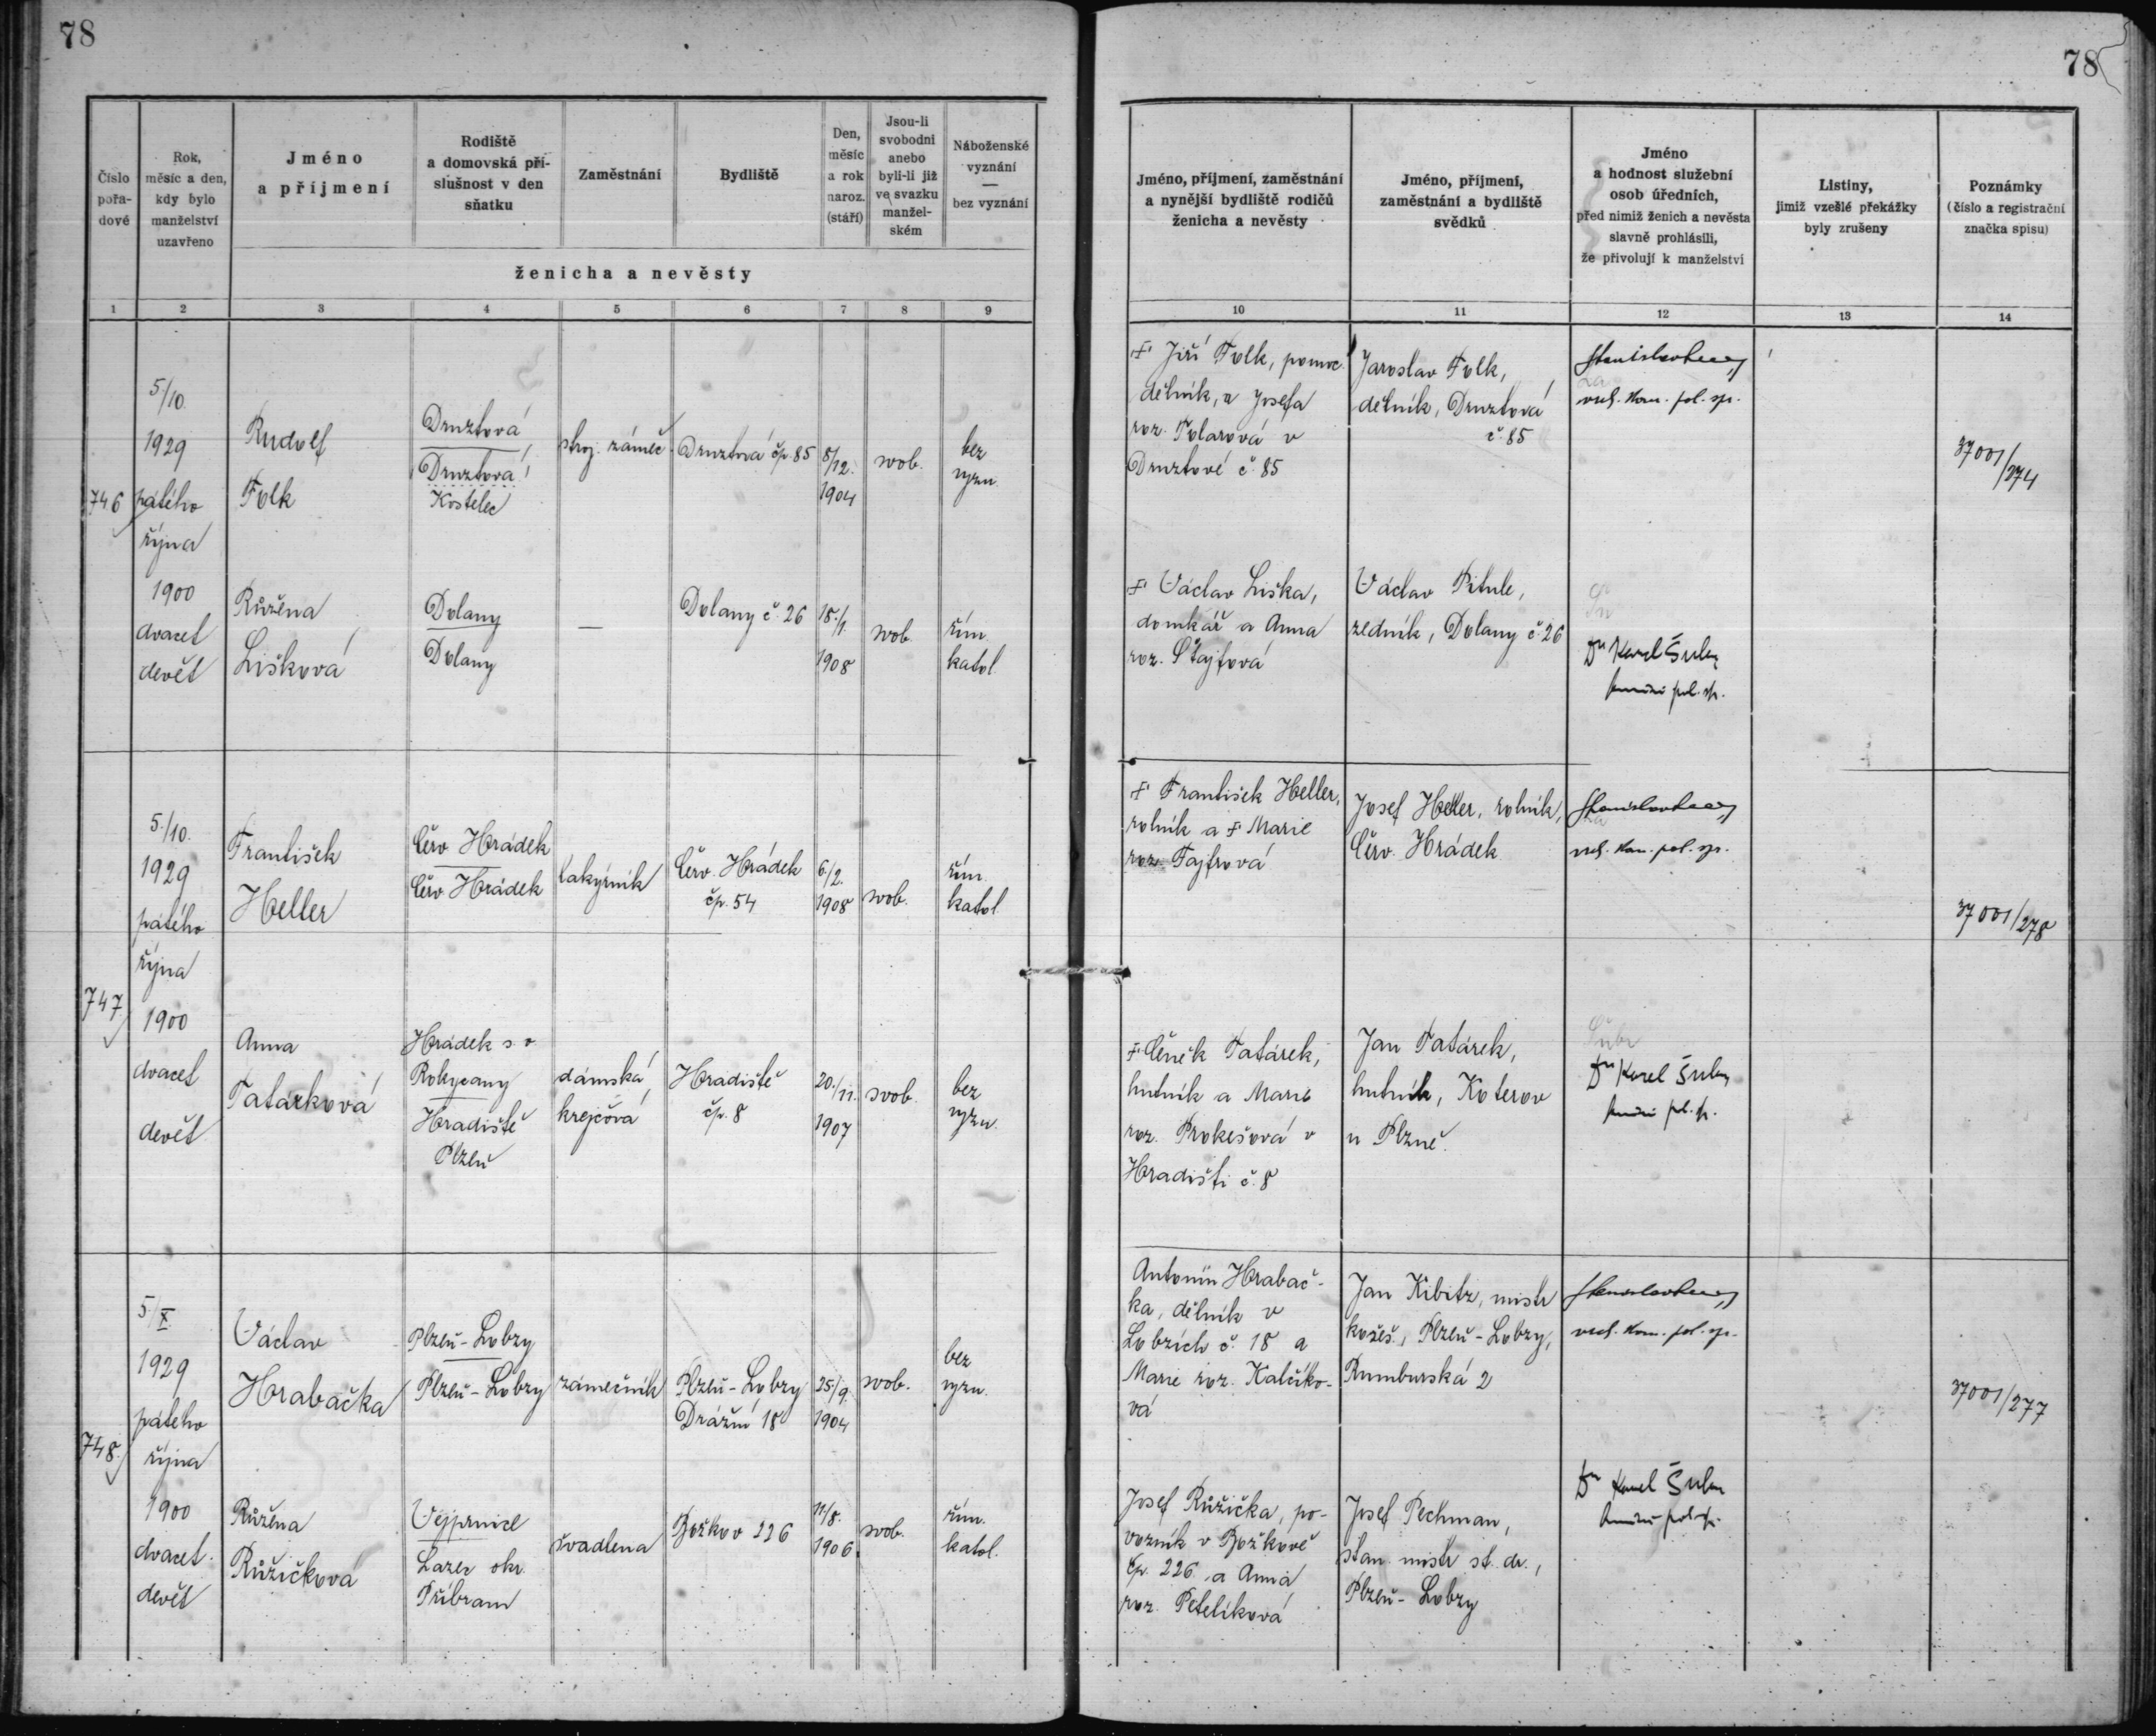 78
78
Číslo pořadové
Rok, měsíc a den, kdy bylo manželství uzavřeno
Jméno a příjmení
Rodiště a domovská příslušnost v den sňatku
Zaměstnání
Bydliště
Den, měsíc a rok naroz. (stáří)
Jsou-li svobodni anebo byli-li již ve svazku manželském
Náboženské vyznání — bez vyznání
ženicha a nevěsty
Jméno, příjmení, zaměstnání a nynější bydliště rodičů ženicha a nevěsty
Jméno, příjmení, zaměstnání a bydliště svědků
Jméno a hodnost služební osob úředních, před nimiž ženich a nevěsta slavně prohlásili, že přivolují k manželství
Listiny, jimiž vzešlé překážky byly zrušeny
Poznámky (číslo a registrační značka spisu)
1 2 3 4 5 6 7 8 9 10 11 12 13 14
746
5./10.
1929
pátého
října
1900
dvacet
devět
Rudolf
Folk
Druztová
Druztová
Kostelec
stroj. zámeč.
Druztová čp. 85
8/12.
1904
svob.
bez
vyzn.
Jiří Folk, pomoc.
dělník, a Josefa
roz. Tolarová v
Druztové č. 85
Jaroslav Folk,
dělník, Druztová
č. 85
vrch. kom. pol. spr.
37001/274
Růžena
Lišková
Dolany
Dolany
—
Dolany č. 26
18./1.
1908
svob.
řím.
katol.
Václav Liška,
domkář a Anna
roz. Štajfová
Václav Pitule,
zedník, Dolany č. 26
Dr Karel Šulc
pol. spr.
747
5./10.
1929
pátého
října
1900
dvacet
devět
František
Heller
Červ. Hrádek
Červ. Hrádek
lakýrník
Červ. Hrádek
čp. 54
6./2.
1908
svob.
řím.
katol.
František Heller,
rolník a Marie
roz. Tajfrová
Josef Heller, rolník,
Červ. Hrádek
vrch. kom. pol. spr.
37001/278
Anna
Tatárková
Hrádek s. o
Rokycany
Hradiště
Plzeň
dámská
krejčová
Hradiště
čp. 8
20./11.
1907
svob.
bez
vyzn.
Čeněk Tatárek,
hutník a Marie
roz. Prokešová v
Hradišti č. 8
Jan Tatárek,
hutník, Koterov
u Plzně.
Dr Karel Šulc
pol. spr.
748.
5/X.
1929
pátého
října
1900
dvacet
devět
Václav
Hrabačka
Plzeň-Lobzy
Plzeň-Lobzy
zámečník
Plzeň-Lobzy
Drážní 18
25./9.
1904
svob.
bez
vyzn.
Antonín Hrabač-
ka, dělník v
Lobzích č. 18 a
Marie roz. Kalčíko-
vá
Jan Kibitz, mistr
kožeš., Plzeň-Lobzy,
Rumburská 2
vrch. kom. pol. spr.
37001/277
Růžena
Růžičková
Vejprnice
Lazec okr.
Příbram
švadlena
Božkov 226
11/8.
1906
svob.
řím.
katol.
Josef Růžička, po-
vozník v Božkově
čp. 226 a Anna
roz. Petelíková
Josef Pechman,
stan. mistr st. dr.,
Plzeň-Lobzy
Dr Karel Šulc